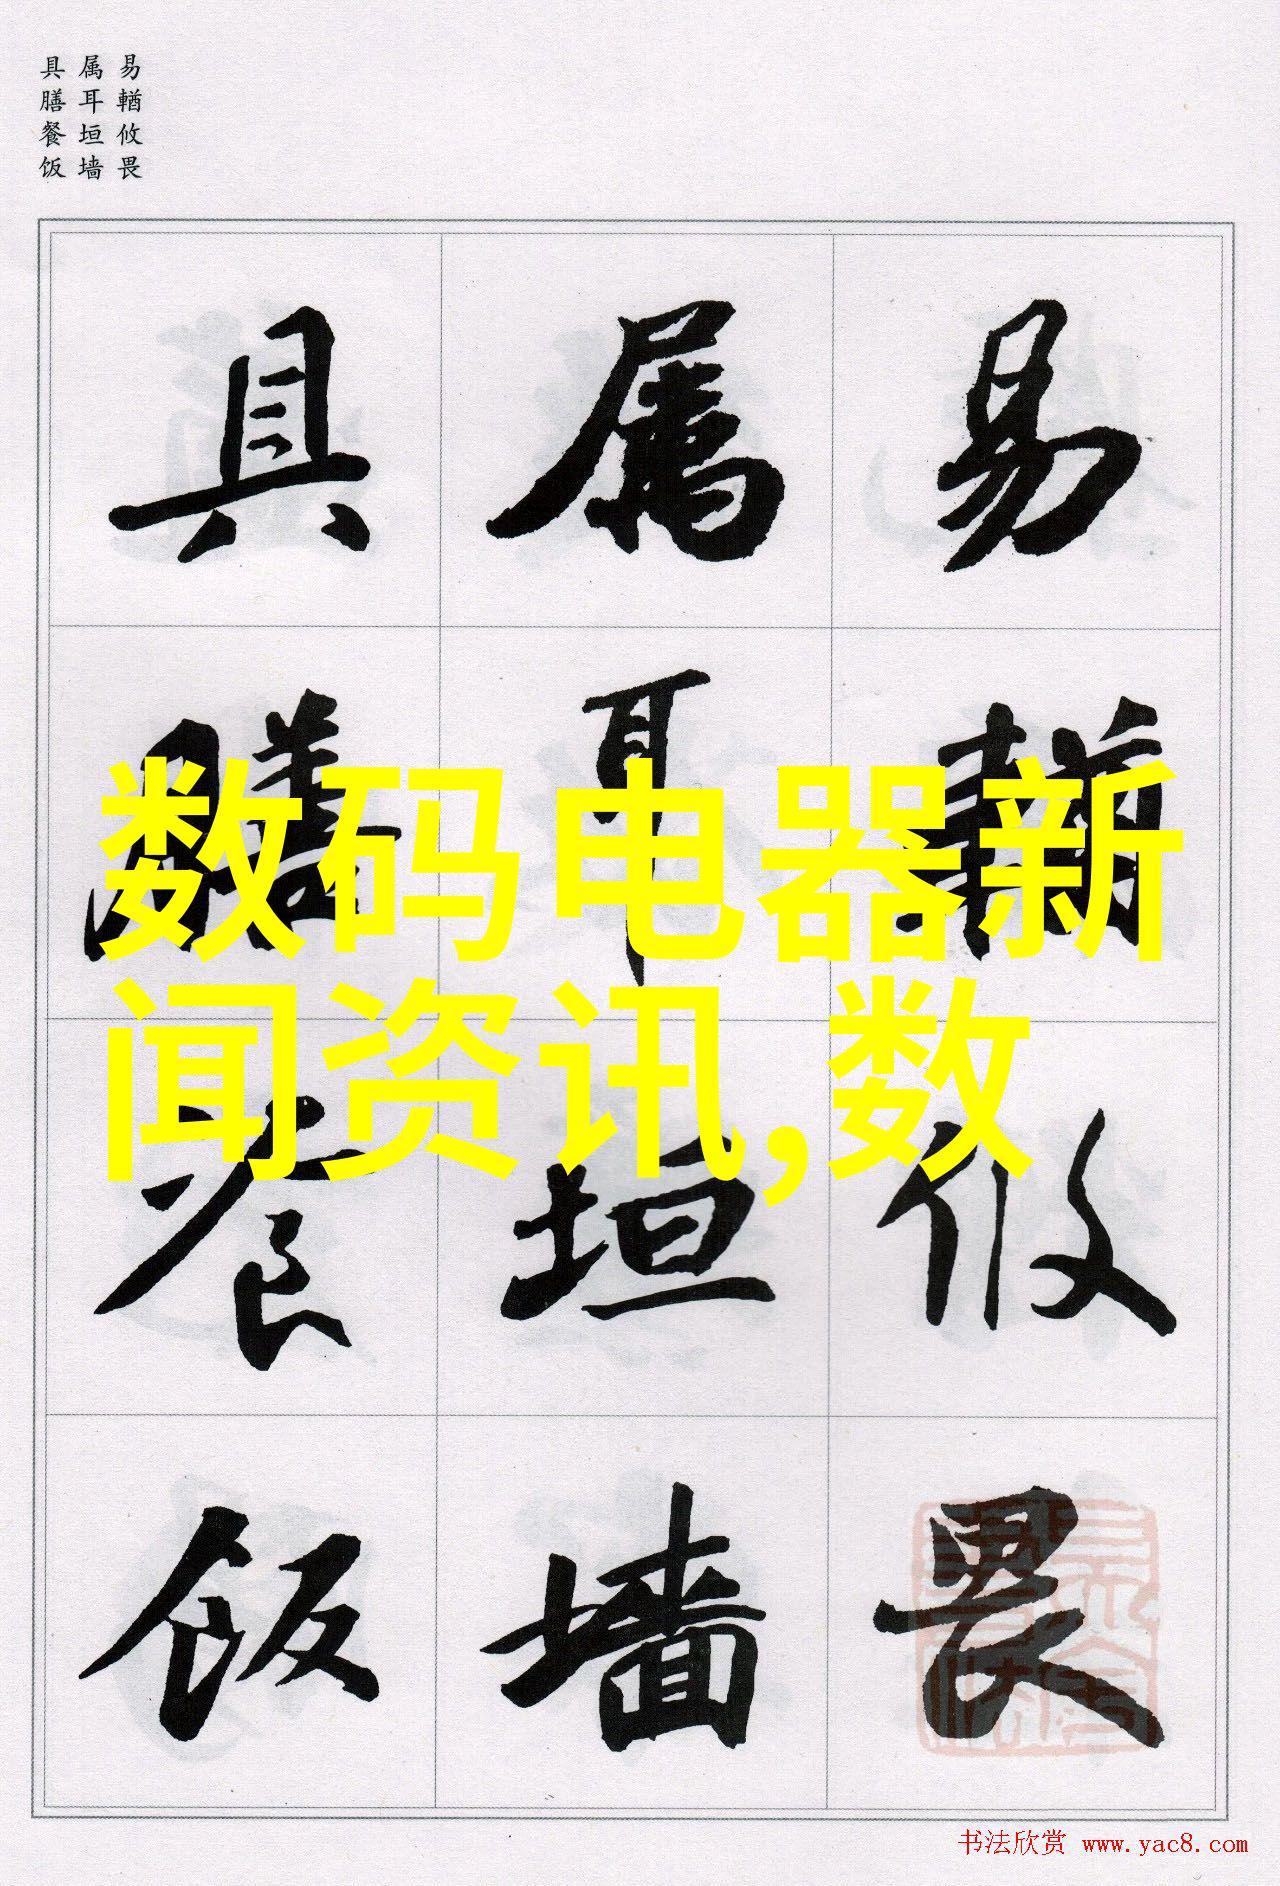 易輶攸畏
属耳垣墙
具膳餐饭
易輶攸畏
属耳垣墙
具膳餐饭
数码电器新
闻资讯,数
书法欣赏 www.yac8.com